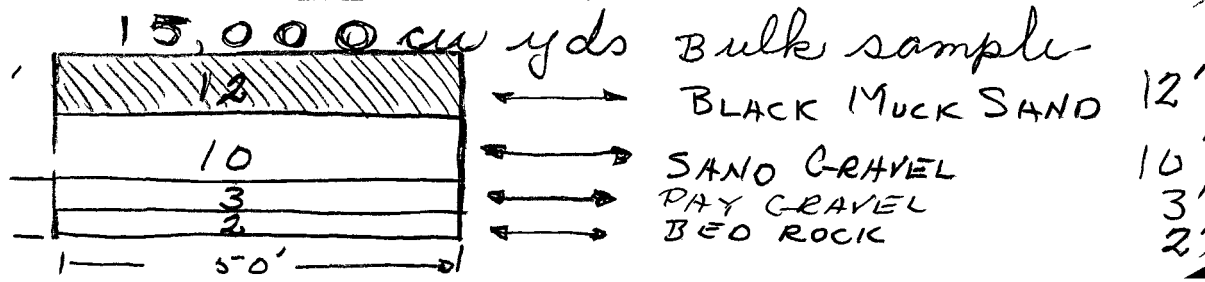 15,000 cu yds Bulk sample
12 BLACK MUCK SAND 12'
10 SAND GRAVEL 10'
3 PAY GRAVEL 3'
2 BED ROCK 2'
50'